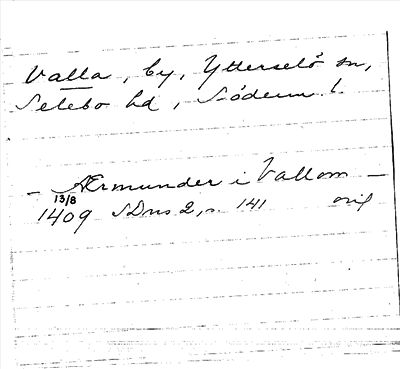 Valla, by, Ytterselö sn,
Selebo hd, Söderm l.
– Ærmunder i Vallom –
13/8
1409 SDns 2, s. 141 orig